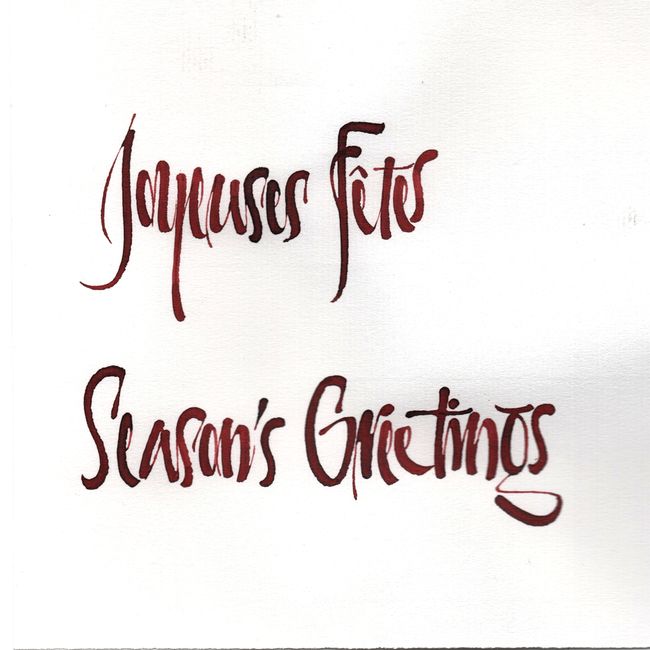 Joyeuses Fêtes
Season's Greetings